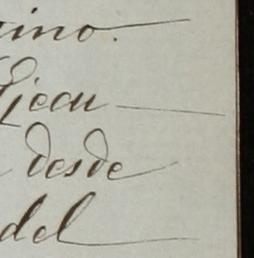 ino.
Ejecu
desde
del